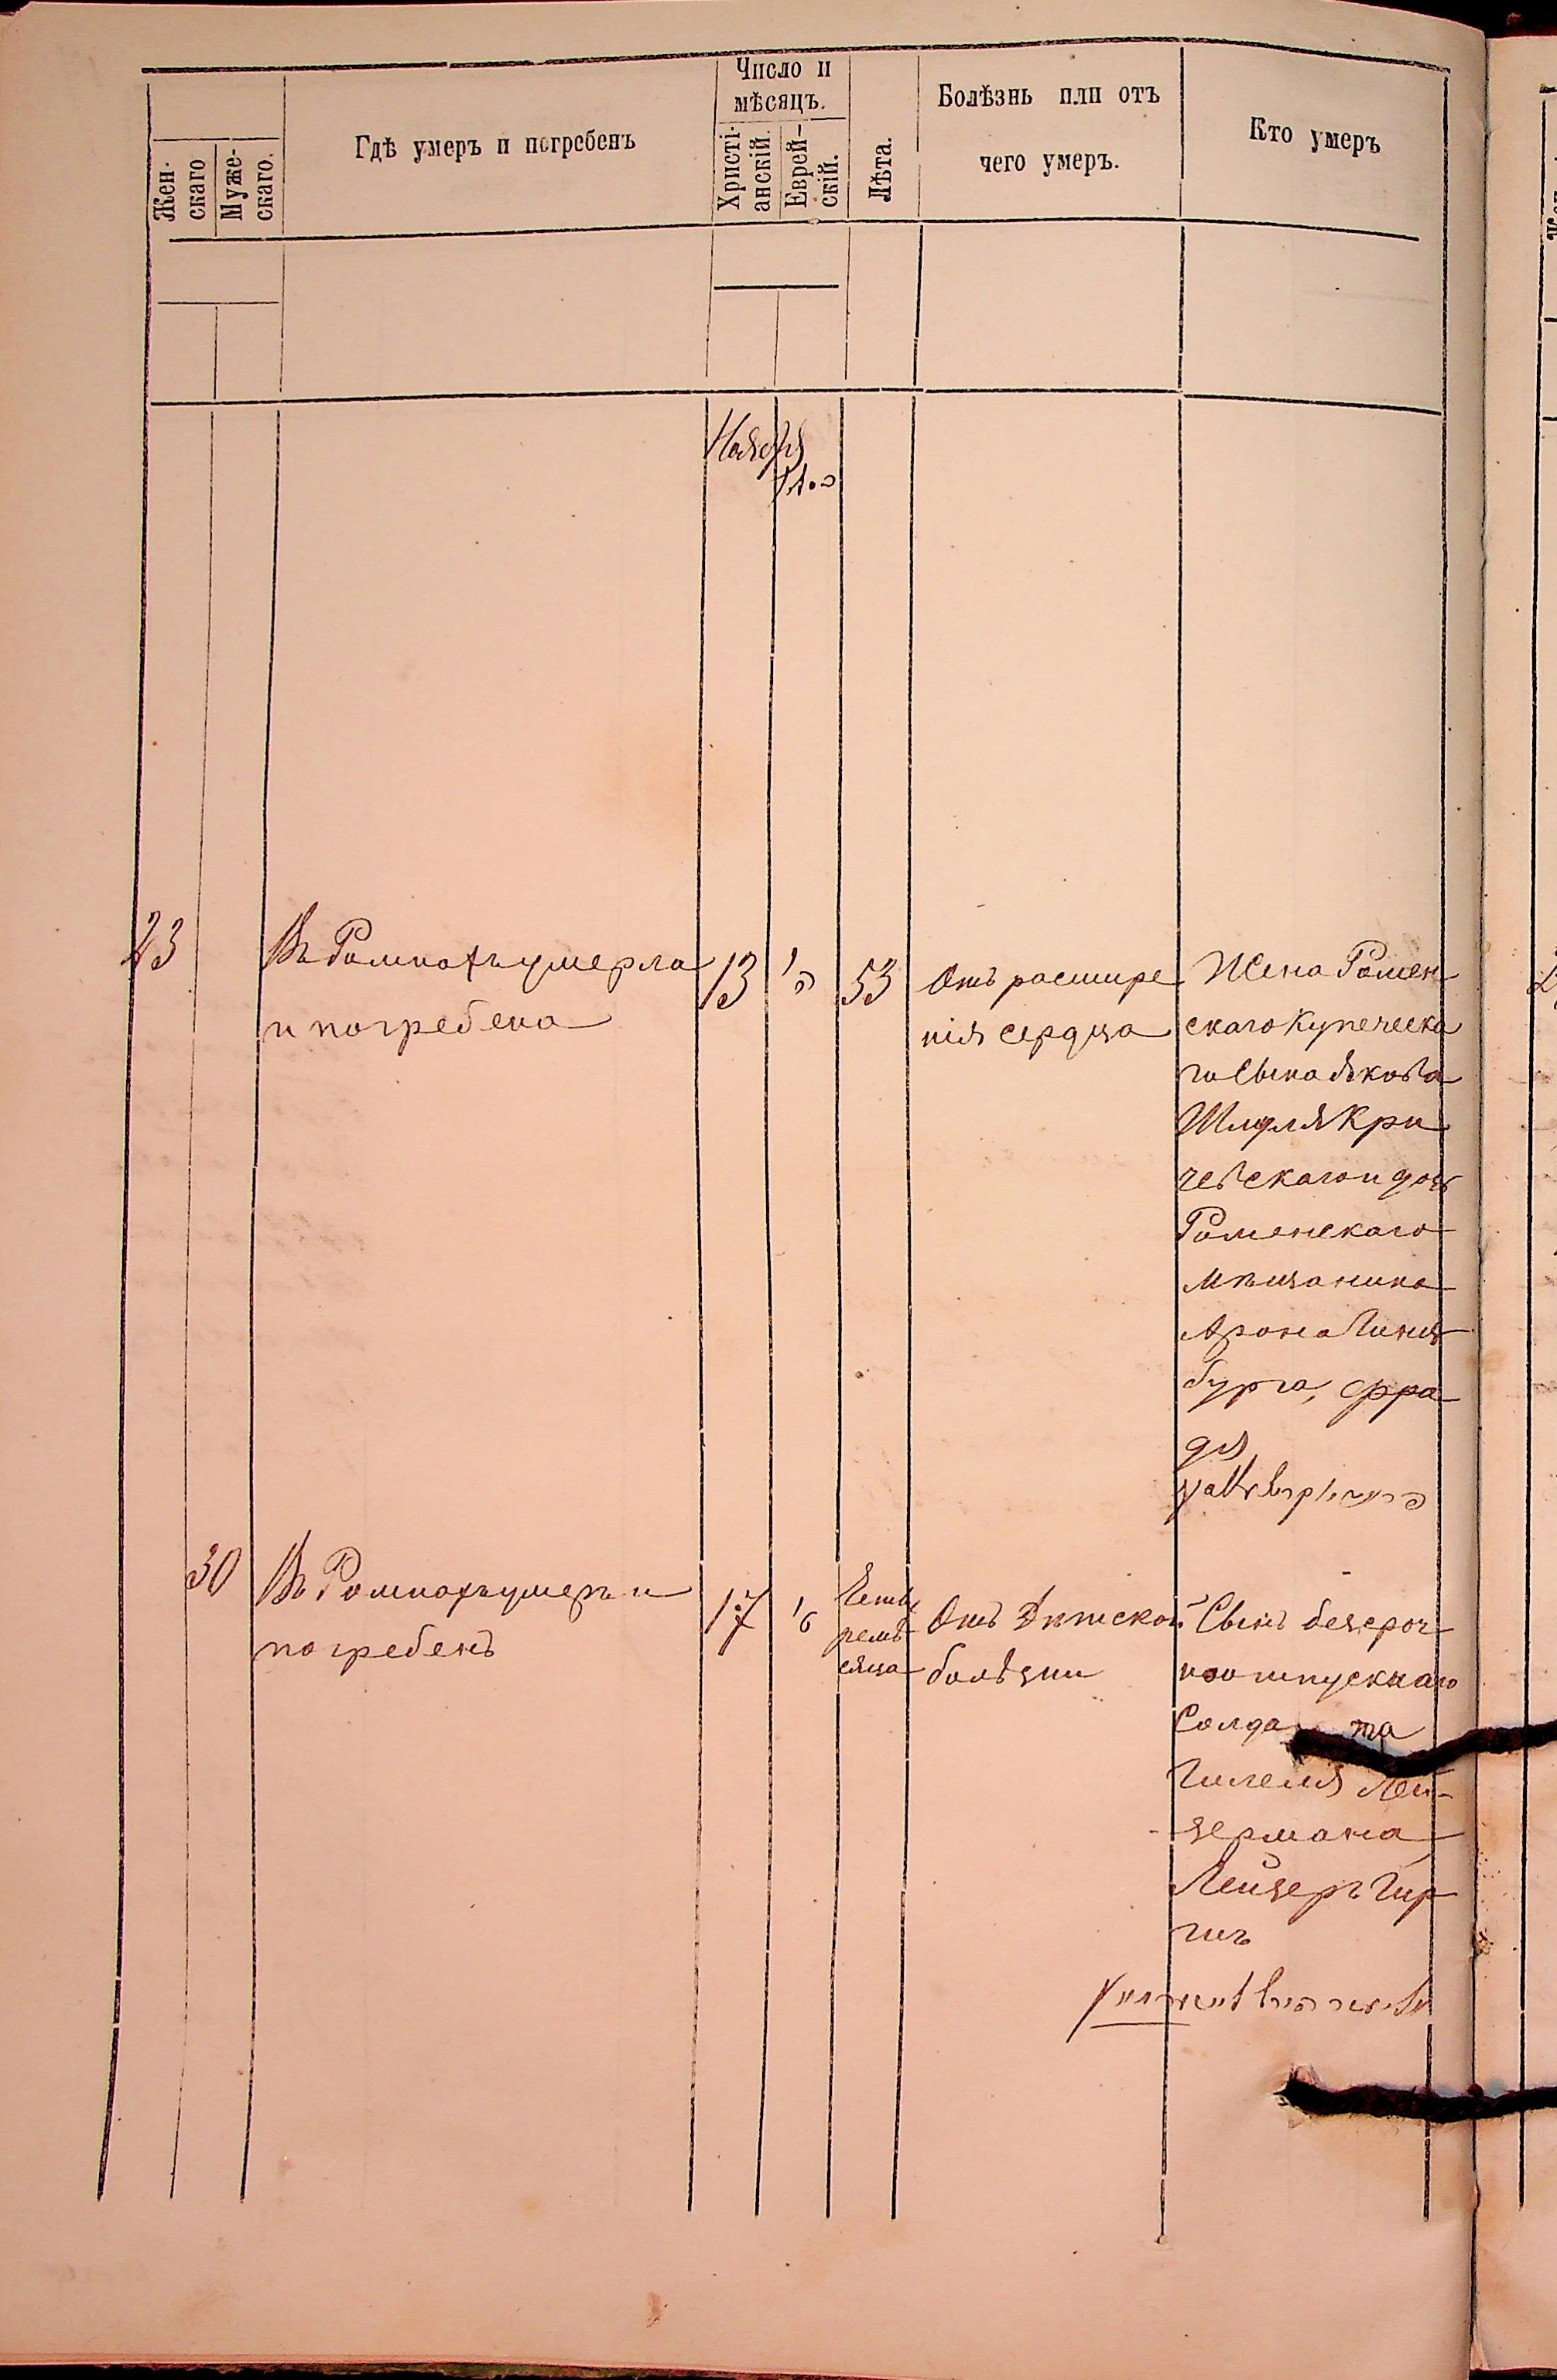 Жен-
скаго
Муже-
скаго.
Гдѣ умеръ и погребенъ
Число и
мѣсяцъ.
Христі-
анскій.
Еврей-
скій.
Лѣта.
Болѣзнь или отъ
чего умеръ.
Кто умеръ
Ноября
23
Въ Ромнахъ умерла
и погребена
13
53
Отъ расшире
нія сердца
Жена Ромен
скаго Купеческа
го Сына Якова
Шмуля Кри
чевскаго и дочь
Роменскаго
мѣщанина
Арона Гинз
бурга, Фра
дя
30
Въ Ромнахъ умеръ и
погребенъ
17
Четы
ремѣ
сяца
Отъ Дѣтской
болѣзни
Сынъ безсроч
ноотпускнаго
Солдата
Гилеля Лей-
зермана
Лейзеръ Гир